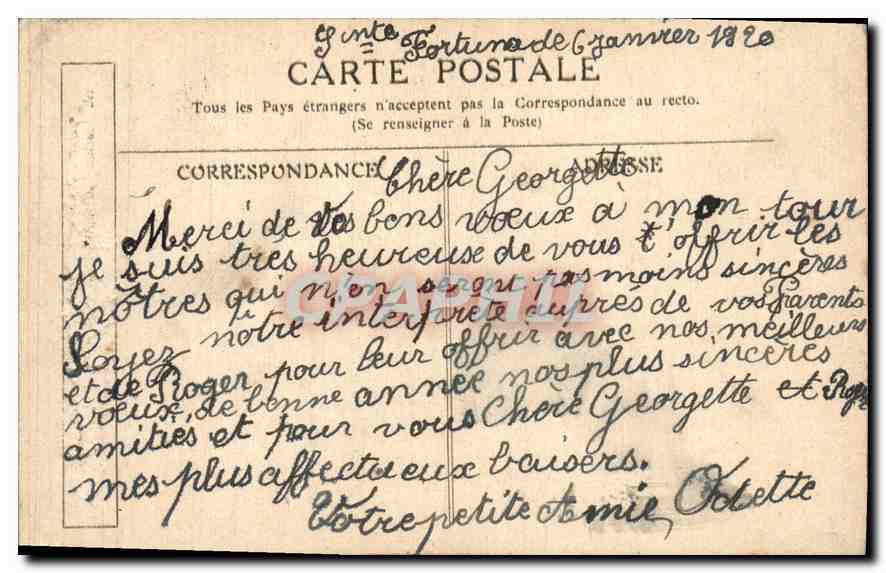 Sinte Fortunade 6 janvier 1920
CARTE POSTALE
Tous les Pays étrangers n'acceptent pas la Correspondance au recto.
(Se renseigner à la Poste)
CORRESPONDANCE ADRESSE
Chère Georgette
Merci de vos bons vœux à mon tour
je suis très heureuse de vous t'offrir les
nôtres qui n'en seront pas moins sincères
Soyez nôtre interprète auprés de vos Parents
et de Roger pour leur offrir avec nos meilleurs
vœux de bonne année nos plus sincères
amitiés et pour vous Chère Georgette et Roger
mes plus affectueux baisers.
Votre petite Amie Odette
CPAPHIL